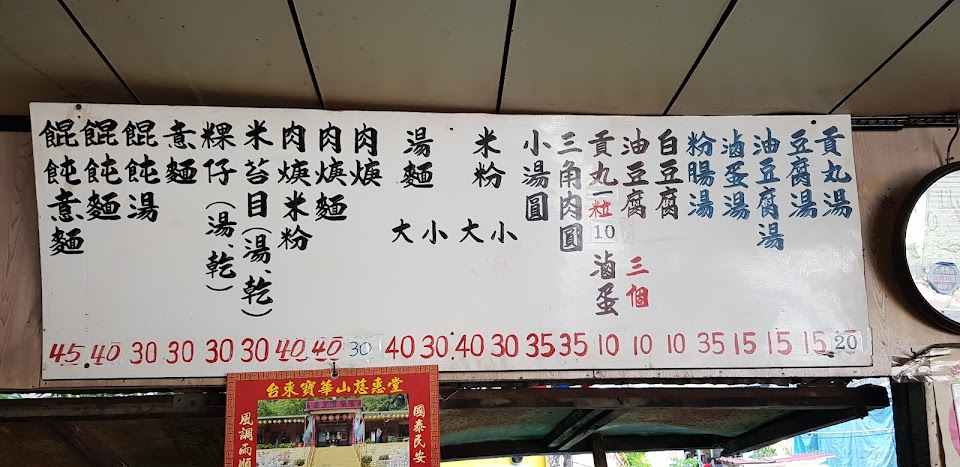 貢丸湯 20
豆腐湯 15
油豆腐湯 15
滷蛋湯 15
粉腸湯 35
白豆腐 10
油豆腐 三個 10
貢丸一粒10 滷蛋 10
三角肉圓 35
小湯圓 35
米粉 大 40 小 30
湯麵 大 40 小 30
肉焿 30
肉焿麵 40
肉焿米粉 40
米苔目(湯、乾) 30
粿仔(湯、乾) 30
意麵 30
餛飩湯 30
餛飩麵 40
餛飩意麵 45
台東寶華山慈惠堂
國泰民安
風調雨順